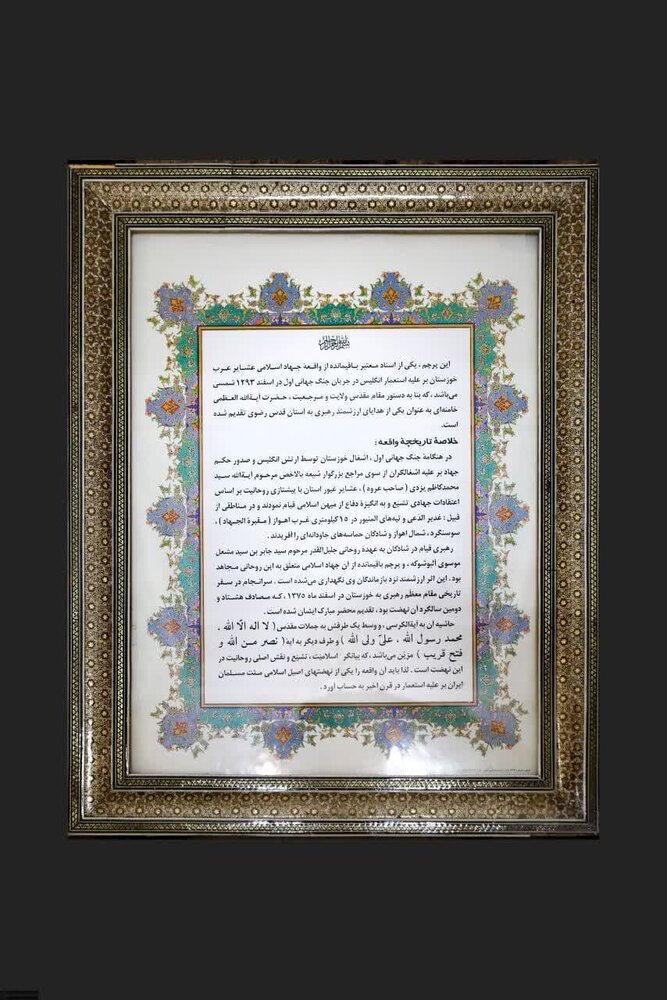 بسم الله الرحمن الرحیم
این پرچم ، یکی از اسناد معتبر باقیمانده از واقعهٔ جهاد اسلامی عشایر عرب
خوزستان بر علیه استعمار انگلیس در جریان جنگ جهانی اول در اسفند ۱۲۹۳ شمسی
می‌باشد ، که بنا به دستور مقام مقدس ولایت و مرجعیت ، حضرت آیةالله العظمی
خامنه‌ای به عنوان یکی از هدایای ارزشمند رهبری به آستان قدس رضوی تقدیم شده
است.
خلاصهٔ تاریخچهٔ واقعه :
در هنگامهٔ جنگ جهانی اول ، اشغال خوزستان توسط ارتش انگلیس و صدور حکم
جهاد بر علیه اشغالگران از سوی مراجع بزرگوار شیعه بالاخص مرحوم آیةالله سید
محمدکاظم یزدی ( صاحب عروه ) ، عشایر غیور استان با پیشتازی روحانیت بر اساس
اعتقادات جهادی تشیع و به انگیزهٔ دفاع از میهن اسلامی قیام نمودند و در مناطقی از
قبیل : غدیر الدعی و تپه‌های المنیور در ۱۵ کیلومتری غرب اهواز ( مقبرة الجهاد ) ،
سوسنگرد ، شمال اهواز و شادگان حماسه‌های جاودانه‌ای را آفریدند .
رهبری قیام در شادگان به عهده روحانی جلیل‌القدر مرحوم سید جابر بن سید مشعل
موسوی آلبوشوکه ، و پرچم باقیمانده از آن جهاد اسلامی متعلق به این روحانی مجاهد
بود. این اثر ارزشمند نزد بازماندگان وی نگهداری می‌شده است . سرانجام در سفر
تاریخی مقام معظم رهبری به خوزستان در اسفند ماه ۱۳۷۵ ، که مصادف هشتاد و
دومین سالگرد آن نهضت بود ، تقدیم محضر مبارک ایشان شده است .
حاشیه آن به آیةالکرسی ، و وسط یک طرفش به جملات مقدس ( لا اله الّا الله ،
محمد رسول الله ، علیٌ ولی الله ) و طرف دیگر به آیه ( نصر من الله و
فتح قریب ) مزیّن می‌باشد ، که بیانگر اسلامیّت ، تشیّع و نقش اصلی روحانیت در
این نهضت است . لذا باید آن واقعه را یکی از نهضتهای اصیل اسلامی ملت مسلمان
ایران بر علیه استعمار در قرن اخیر به حساب آورد .